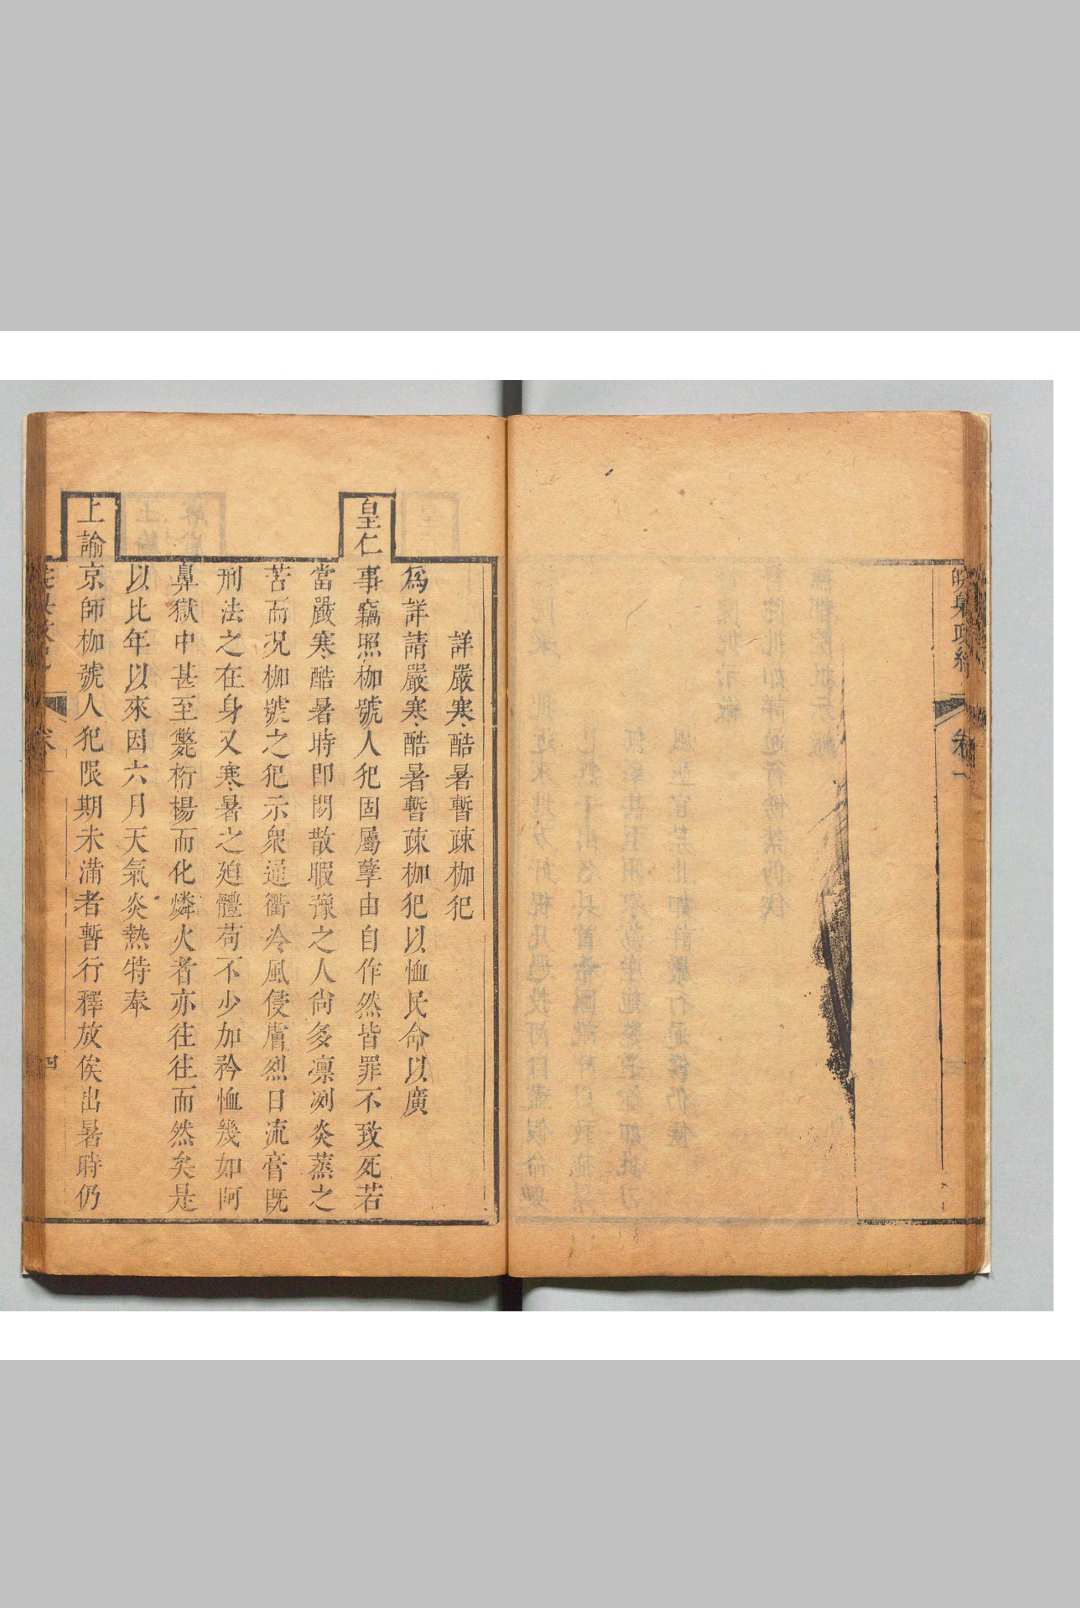 皖臬政紀
卷一
詳嚴寒酷暑暫疎枷犯
爲詳請嚴寒酷暑暫疎枷犯以恤民命以廣
皇仁事竊照枷號人犯固屬孽由自作然皆罪不致死若
當嚴寒酷暑時即閒散暇豫之人尙多凛冽炎蒸之
苦而况枷號之犯示衆通衢冷風侵膚烈日流膏既
刑法之在身又寒暑之廹體苟不少加矜恤幾如阿
鼻獄中甚至斃桁楊而化燐火者亦往往而然矣是
以比年以來因六月天氣炎熱特奉
上諭京師枷號人犯限期未滿者暫行釋放俟出暑時仍
四